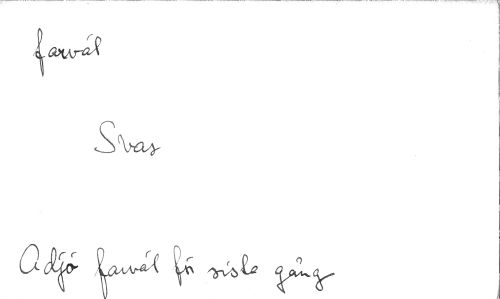 farvál
Svas
Adjö farvál för sista gång